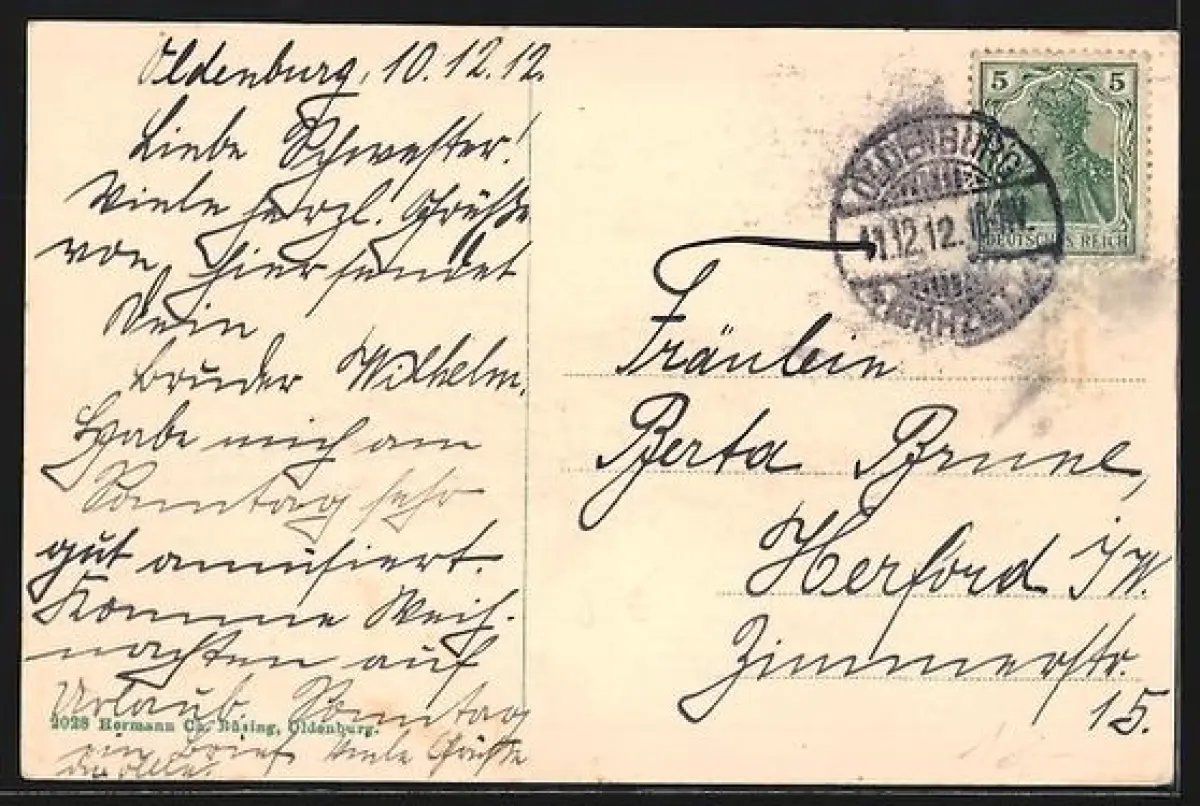 Oldenburg, 10.12.12.
Liebe Schwester!
Viele herzl. Grüße
von hier sendet
Dein
Bruder Wilhelm.
Habe mich am
Sonntag sehr
gut amüsiert.
Komme Weih-
nachten auf
Urlaub. Sonntag
ein Brief Viele Grüße
an alle.
2028 Hermann Ch. Büsing, Oldenburg.
5 5
DEUTSCHES REICH
OLDENBURG
11.12.12.
Fräulein
Berta Brune,
Herford i/W.
Zimmerstr.
15.